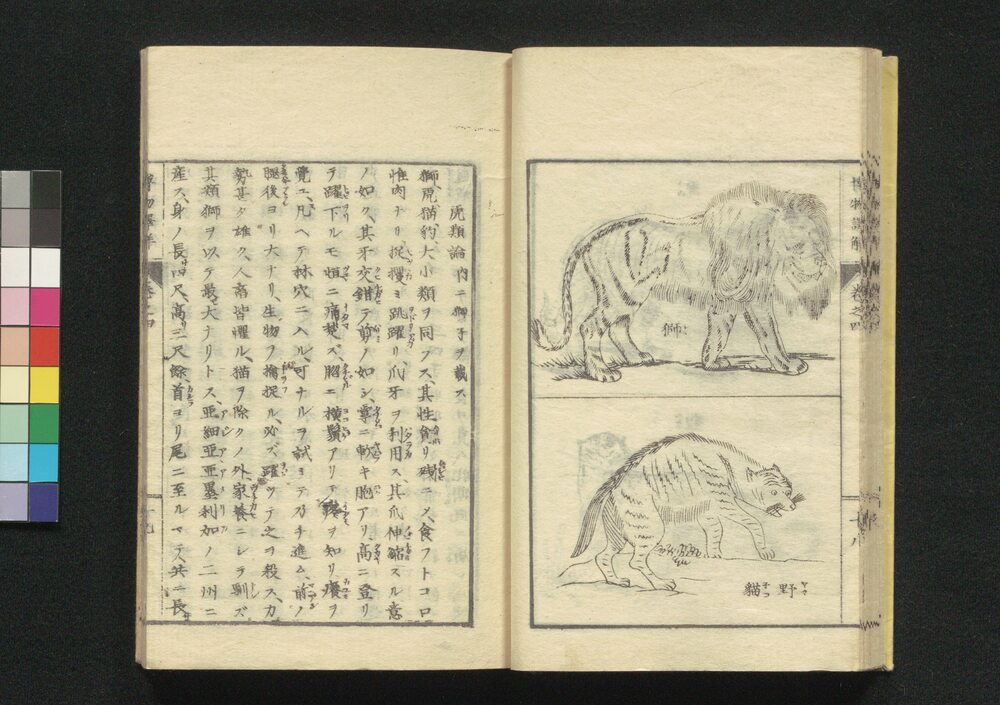 博物譯解 卷之四
獅
野貓
ヤマ子コ
虎類論 内ニ獅子ヲ載ス
獅虎猫豹大小類ヲ同フス、其性貪リ残ニメ、食フトコロ
惟肉ナリ捉攫ヨ跳躍リ爪牙ヲ利用ス、其爪伸縮スル意
ノ如ク、其牙交錯テ剪ノ如シ、掌ニ軟キ胞アリ高ニ登リ
テ躍下ルモ頓ニ痛楚ズ、腮ニ横鬚アリテ鋒ヲ知リ癢ヲ
覺ユ、凡ヘテ林穴ニ入ル、可ナルヲ試ミテ乃チ進ム、前ノ
腿後ヨリ大ナリ、生物ヲ擒捉ル、必ズ躍ツテ之ヲ殺ス、力
勢甚タ雄ク、人畜皆懼ル、猫ヲ除クノ外、家養ニシテ馴ズ
其類獅ヲ以テ最モ大ナリトス、亜細亜亜墨利加ノ二州ニ
産ス、身ノ長四尺、高三尺餘、首ヨリ尾ニ至ルマデ共ニ長